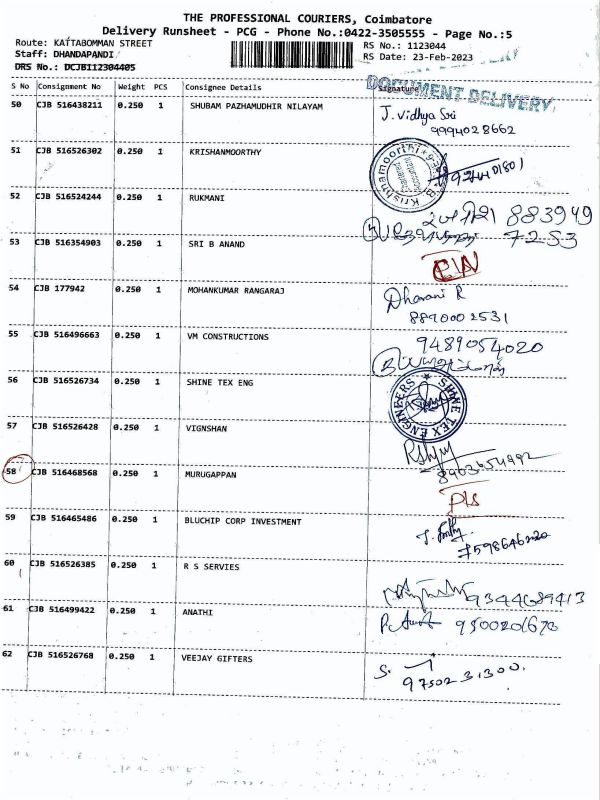 THE PROFESSIONAL COURIERS, Coimbatore
Delivery Runsheet - PCG - Phone No.:0422-3505555 - Page No.:5
Route: KATTABOMMAN STREET
Staff: DHANDAPANDI
DRS No.: DCJBI12304405
RS No.: 1123044
RS Date: 23-Feb-2023
S No Consignment No Weight PCS Consignee Details Signature
DOCUMENT DELIVERY
50 CJB 516438211 0.250 1 SHUBAM PAZHAMUDHIR NILAYAM J. Vidhya Sri
9994028662
51 CJB 516526302 0.250 1 KRISHNAMOORTHY
B. Krishnamoorthi
Chartered
Accountant
52 CJB 516524244 0.250 1 RUKMANI
883949
7253
53 CJB 516354903 0.250 1 SRI B ANAND
54 CJB 177942 0.250 1 MOHANKUMAR RANGARAJ Dharani R
8890002531
55 CJB 516496663 0.250 1 VM CONSTRUCTIONS 9489054020
56 CJB 516526734 0.250 1 SHINE TEX ENG
SHINE TEX ENGINEERS
57 CJB 516526428 0.250 1 VIGNSHAN
58 CJB 516468568 0.250 1 MURUGAPPAN
59 CJB 516465486 0.250 1 BLUCHIP CORP INVESTMENT
7598646220
60 CJB 516526385 0.250 1 R S SERVIES
9344689413
61 CJB 516499422 0.250 1 ANATHI
62 CJB 516526768 0.250 1 VEEJAY GIFTERS S.
9750231300